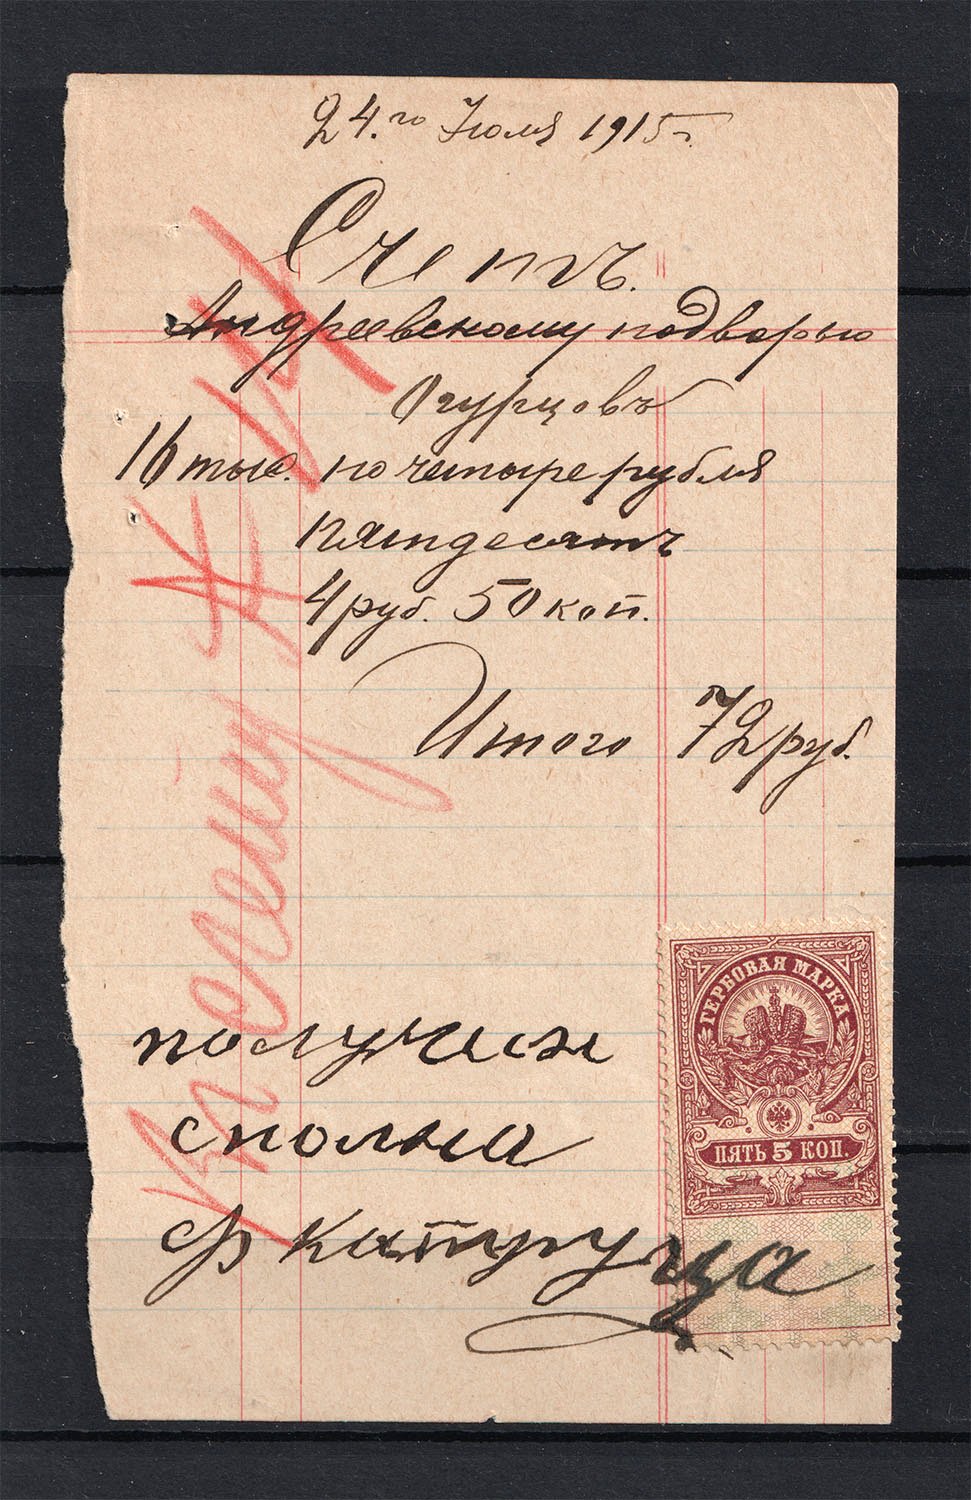 24.го Июля 1915 г.
Счетъ.
Андреевскому подворью
Огурцовъ
16 тыс. по четыре рубля
пятдесятъ
4 руб. 50 коп.
Итого 72 руб.
получил
сполна
Ф Капуруца
ГЕРБОВАЯ МАРКА
ПЯТЬ 5 КОП.